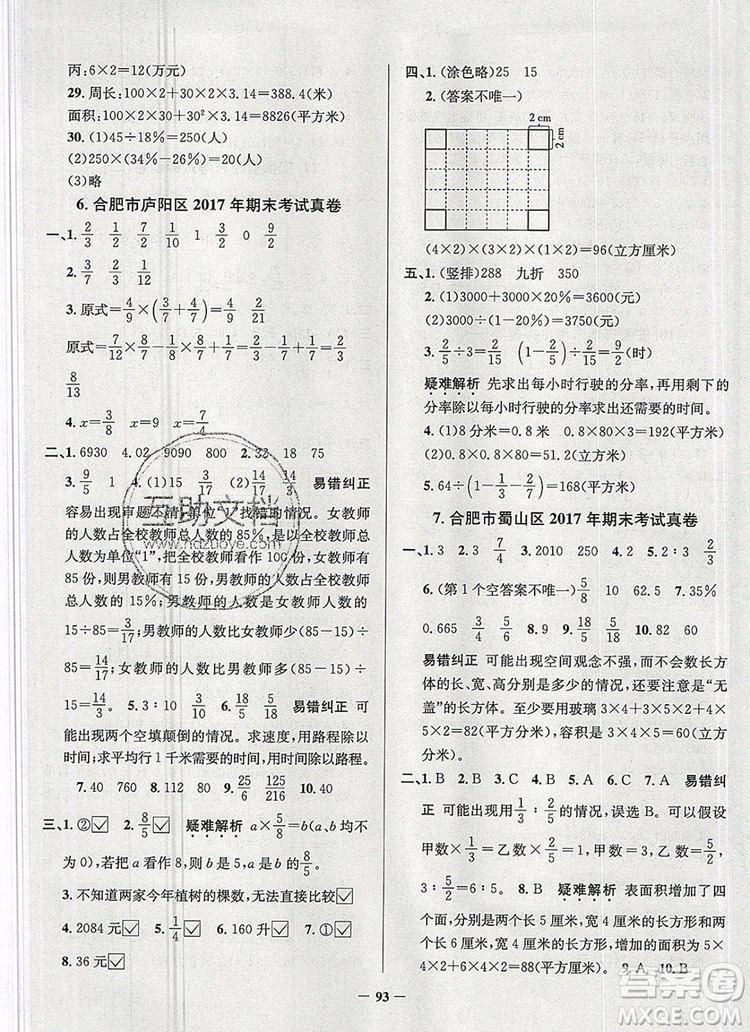 丙:6×2=12(万元)
29. 周长:100×2+30×2×3.14=388.4(米)
面积:100×2×30+30²×3.14=8826(平方米)
30. (1)45÷18%=250(人)
(2)250×(34%-26%)=20(人)
(3)略
6. 合肥市庐阳区 2017 年期末考试真卷
一、1. 2/3 7/2 1/10 1 3/2 0 9/2
2. 3/7 2/3 2/11
3. 原式=4/9×(3/7+4/7)=4/9 2/21
原式=7/12×8/7-1/8×8/7+1/7=2/3-1/7+1/7=2/3
8/13
4. x=3/8 x=9 x=7/4
二、1. 6930 4.02 9090 2.32 18 75
3. 9/5 1 4. (1)15 3/17 (2)14/17 14/3 易错纠正
容易出现审题不清,单位“1”搞错的情况。女教师
的人数占全校教师总人数的 85%,是以全校教师
人数为单位“1”,把全校教师看作 100 份,女教师有
85 份,则男教师有 15 份,男教师的人数占全校教师
总人数的 15%;男教师的人数是女教师人数的
15÷85=3/17;男教师的人数比女教师少(85-15)÷
85=14/17;女教师的人数比男教师多(85-15)÷
15=14/3。 5. 3∶10 6. 9/20 20/9 易错纠正 可
能出现两个空填颠倒的情况。求速度,用路程除以
时间;求平均行 1 千米需要的时间,用时间除以路程。
7. 40 760 240 8. < > < 9. 25/6 125/216 10. 40
三、1. ②☑ 2. 8/5☑ 疑难解析 a×5/8=b(a、b 均不
为 0),若把 a 看作 8,则 b 是 5,a∶b=8∶5=8/5。
3. 不知道两家今年植树的棵数,无法直接比较☑
4. 2084 元☑ 5. 1/4☑ 6. 160 升☑ 7. ①☑
8. 36 元☑
四、1. (涂色略)25 15
2. (答案不唯一)
2 cm
2 cm
(4×2)×(3×2)×(1×2)=96(立方厘米)
五、1. (竖排)288 九折 350
2. (1)3000+3000×20%=3600(元)
(2)3000÷(1-20%)=3750(元)
3. 2/5÷3=2/15 (1-2/5)÷2/15=9/2(时)
疑难解析 先求出每小时行驶的分率,再用剩下的
分率除以每小时行驶的分率求出还需要的时间。
4. (1)8 分米=0.8 米 0.8×80×3=192(平方米)
(2)0.8×0.8×80=51.2(立方米)
5. 64÷(1-1/3-2/7)=168(千米)
7. 合肥市蜀山区 2017 年期末考试真卷
一、1. 3 2. 3 7/4 3. 2010 250 4. > < > 5. 3 2/3
6. (第 1 个空答案不唯一)5/8 10 62.5 7. 83.5%
0.665 3/4 5/6 8. 9 9. 5/18 10. 82 60
易错纠正 可能出现空间观念不强,而不能确定长方
体的长、宽、高分别是多少的情况,还要注意是“无
盖”的长方体。至少要用玻璃 3×4×3+5×4×2+
5×3×2=82(平方分米)。容积是 5×4×3=60(立方
分米)。
二、1. B 2. A 3. C 4. B 5. A 6. B 7. A 易错纠
正 可能出现用1/3∶2/5的情况,误选 B。应该用
甲数×1/3=乙数×2/5,甲数÷乙数=2/5÷1/3,甲数∶乙数=2/5∶
1/3=6∶5。 8. B 疑难解析 表面积增加了四
个面,分别是两个长 5 厘米,宽 4 厘米的长方形,
两个长 6 厘米,宽 4 厘米的长方形,增加的面积是 5×
4×2+6×4×2=88(平方厘米)。 9. A 10. B
— 93 —
互助文档
www.hdzuoye.com
答案圈
MXQE.COM